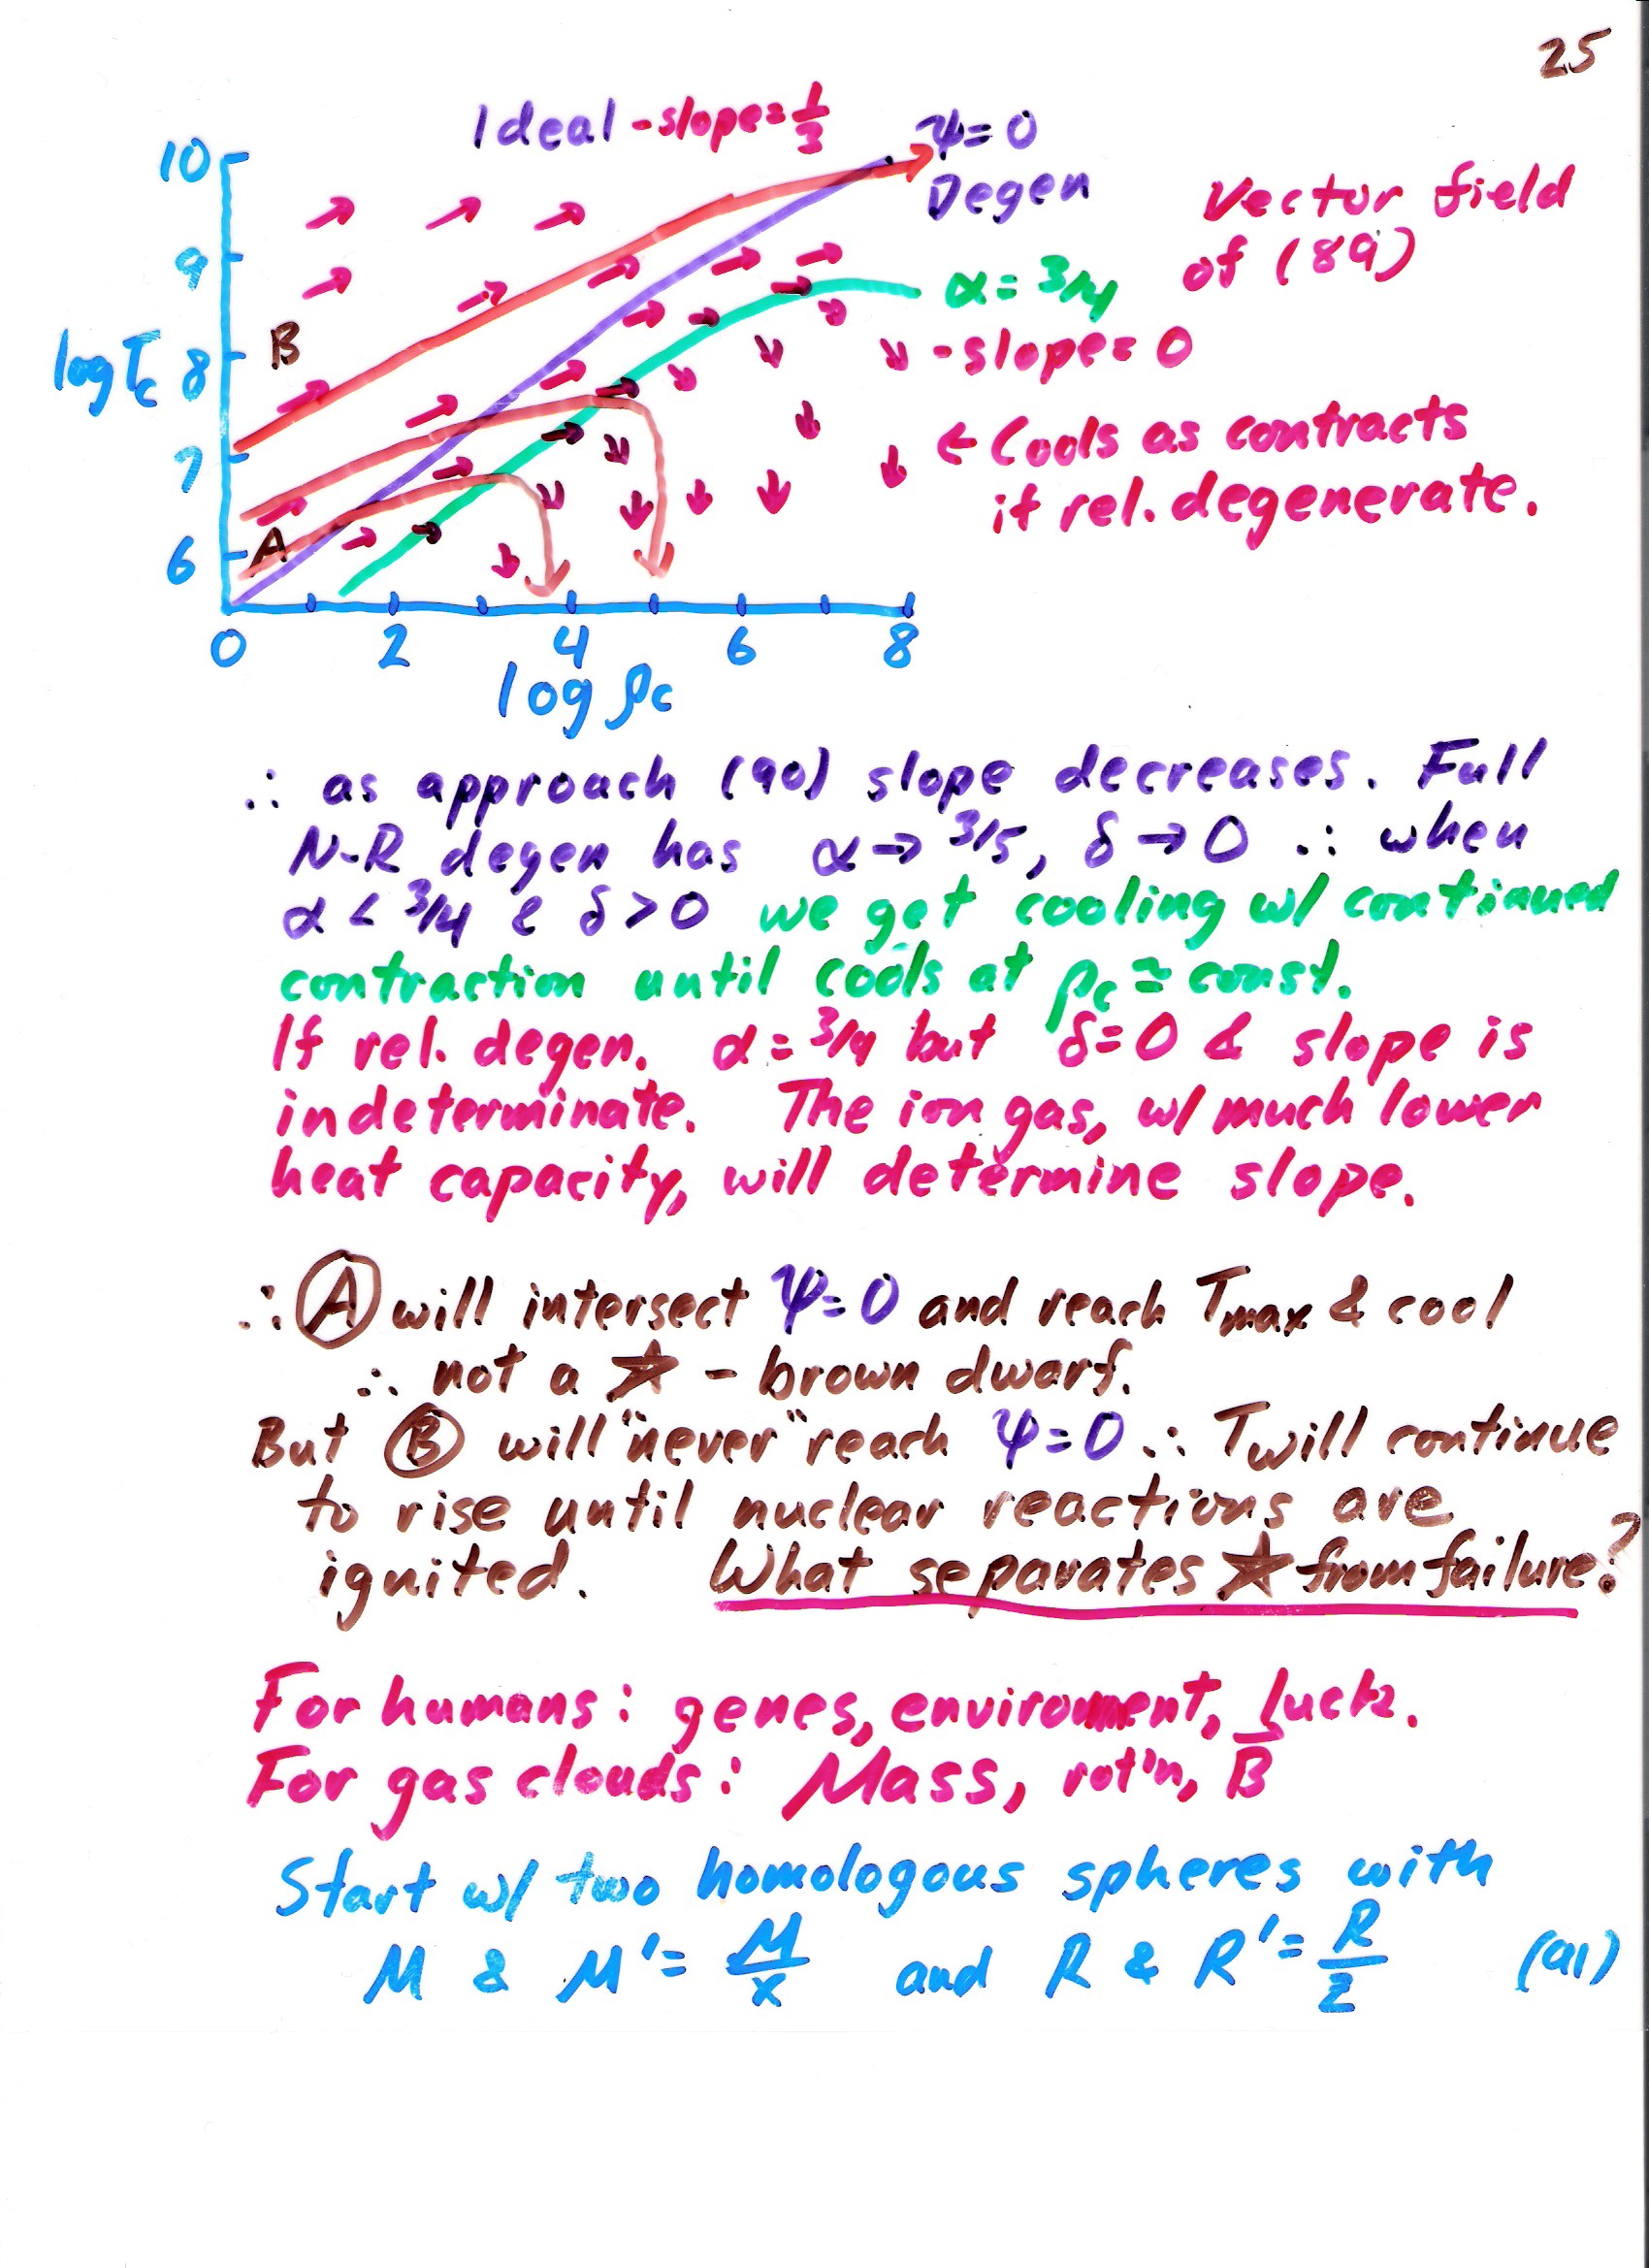 25
Ideal - slope = 1/3
ψ = 0
Degen
Vector field
of (89)
α = 3/4
- slope = 0
← Cools as contracts
if rel. degenerate.
10
9
8
7
6
log Tc
B
A
0 2 4 6 8
log ρc
∴ as approach (90) slope decreases. Full
N-R degen has α → 3/5, δ → 0 ∴ when
α < 3/4 & δ > 0 we get cooling w/ continued
contraction until cools at ρc ≅ const.
If rel. degen. α = 3/4 but δ = 0 & slope is
indeterminate. The ion gas, w/ much lower
heat capacity, will determine slope.
∴ Ⓐ will intersect ψ = 0 and reach Tmax & cool
∴ not a ☆ - brown dwarf.
But Ⓑ will "never" reach ψ = 0 ∴ T will continue
to rise until nuclear reactions are
ignited. What separates ☆ from failure?
For humans: genes, enviroment, luck.
For gas clouds: Mass, rot'n, B̄
Start w/ two homologous spheres with
M & M' = M/x and R & R' = R/z (91)